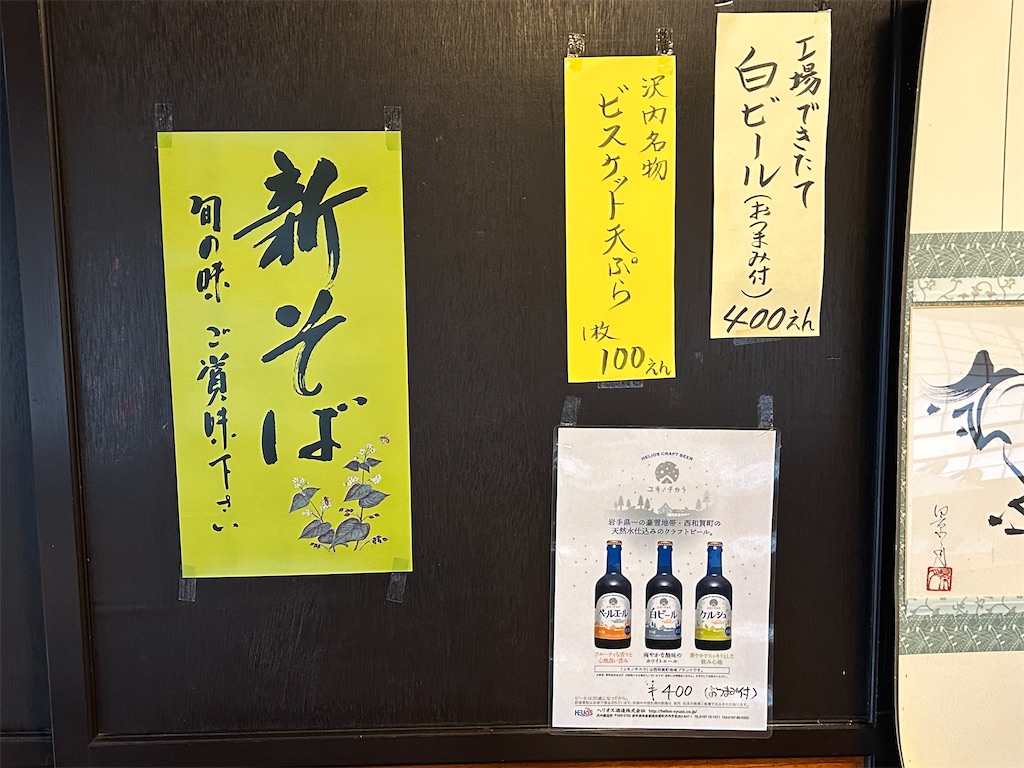 新そば
旬の味 ご賞味下さい
工場できたて
白ビール(おつまみ付)
400えん
沢内名物
ビスケット天ぷら
1枚
100えん
HELIOS CRAFT BEER
ユキノチカラ
岩手県一の豪雪地帯・西和賀町の
天然水仕込みのクラフトビール。
ペールエール
白ビール
ケルシュ
フルーティな香りと
心地良い苦み
爽やかな酸味の
ホワイトエール
華やかでスッキリとした
飲み心地
「ユキノチカラ」は西和賀町地域ブランドです。
¥400 (おつまみ付)
ビールは20歳になってから。
HELIOS ヘリオス酒造株式会社 http://helios-syuzo.co.jp/
景月